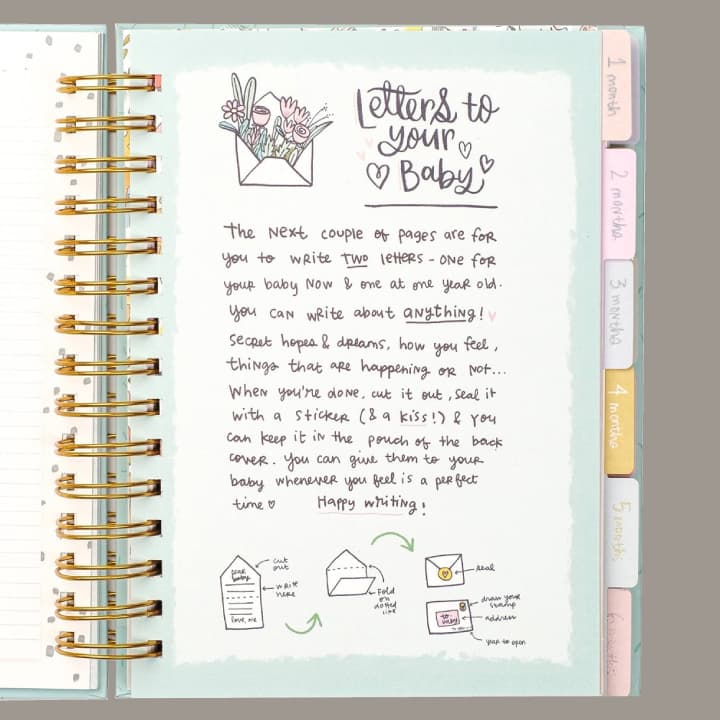 Letters to
your
Baby
The next couple of pages are for
you to write TWO letters - one for
your baby now & one at one year old.
You can write about anything!
Secret hopes & dreams, how you feel,
things that are happening or not...
When you're done, cut it out, seal it
with a sticker (& a kiss!) & you
can keep it in the pouch of the back
cover. You can give them to your
baby whenever you feel is a perfect
time ♡ Happy writing!
dear baby
love, me
cut out
write here
Fold on dotted line
seal
draw your stamp
address
to: baby
year to open
1 month
2 months
3 months
4 months
5 months
6 months